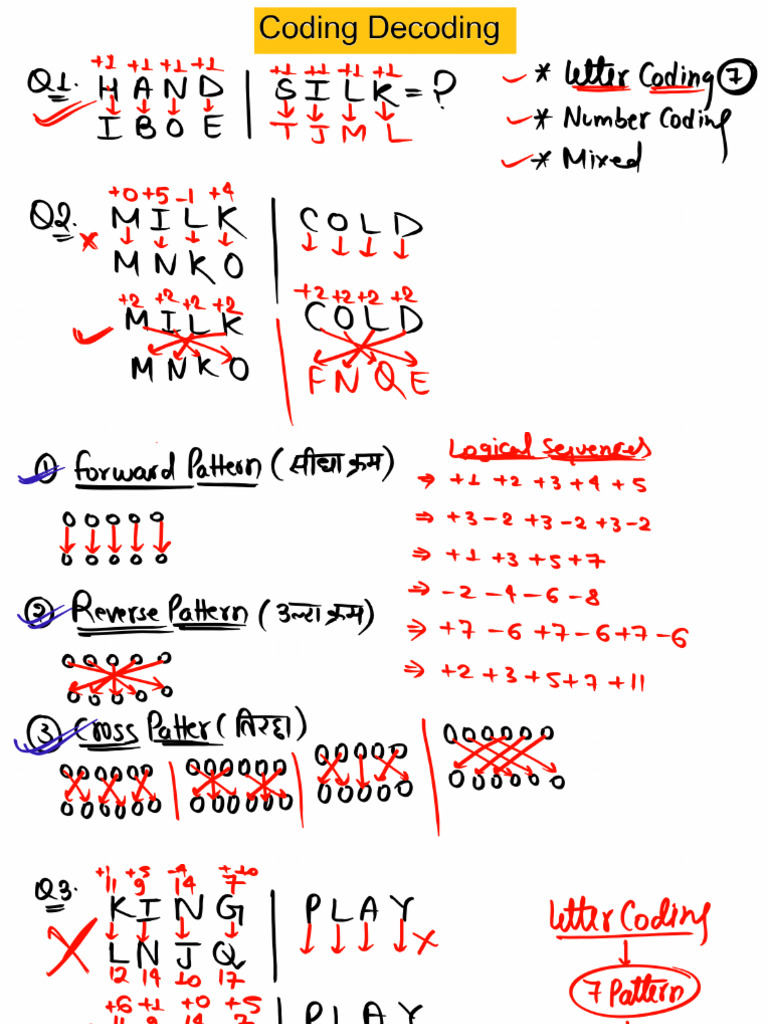 Coding Decoding
+1 +1 +1 +1
Q1. H A N D | S I L K = ?
+1 +1 +1 +1
I B O E
T J M L
* Letter Coding 7
* Number Coding
* Mixed
+0 +5 -1 +4
Q2. M I L K | C O L D
M N K O
+2 +2 +2 +2
M I L K
M N K O
+2 +2 +2 +2
C O L D
F N Q E
① Forward Pattern (सीधा क्रम)
Logical Sequences
⇒ +1 +2 +3 +4 +5
⇒ +3 -2 +3 -2 +3 -2
⇒ +1 +3 +5 +7
⇒ -2 -4 -6 -8
⇒ +7 -6 +7 -6 +7 -6
⇒ +2 +3 +5 +7 +11
② Reverse Pattern (उल्टा क्रम)
③ Cross Patter (तिरछा)
+1 +5 -4 +10
11 9 14 7
Q3. K I N G | P L A Y
L N J Q
12 14 10 17
Letter Coding
7 Pattern
+6 +1 +0 +5
11 9 14 7
P L A Y